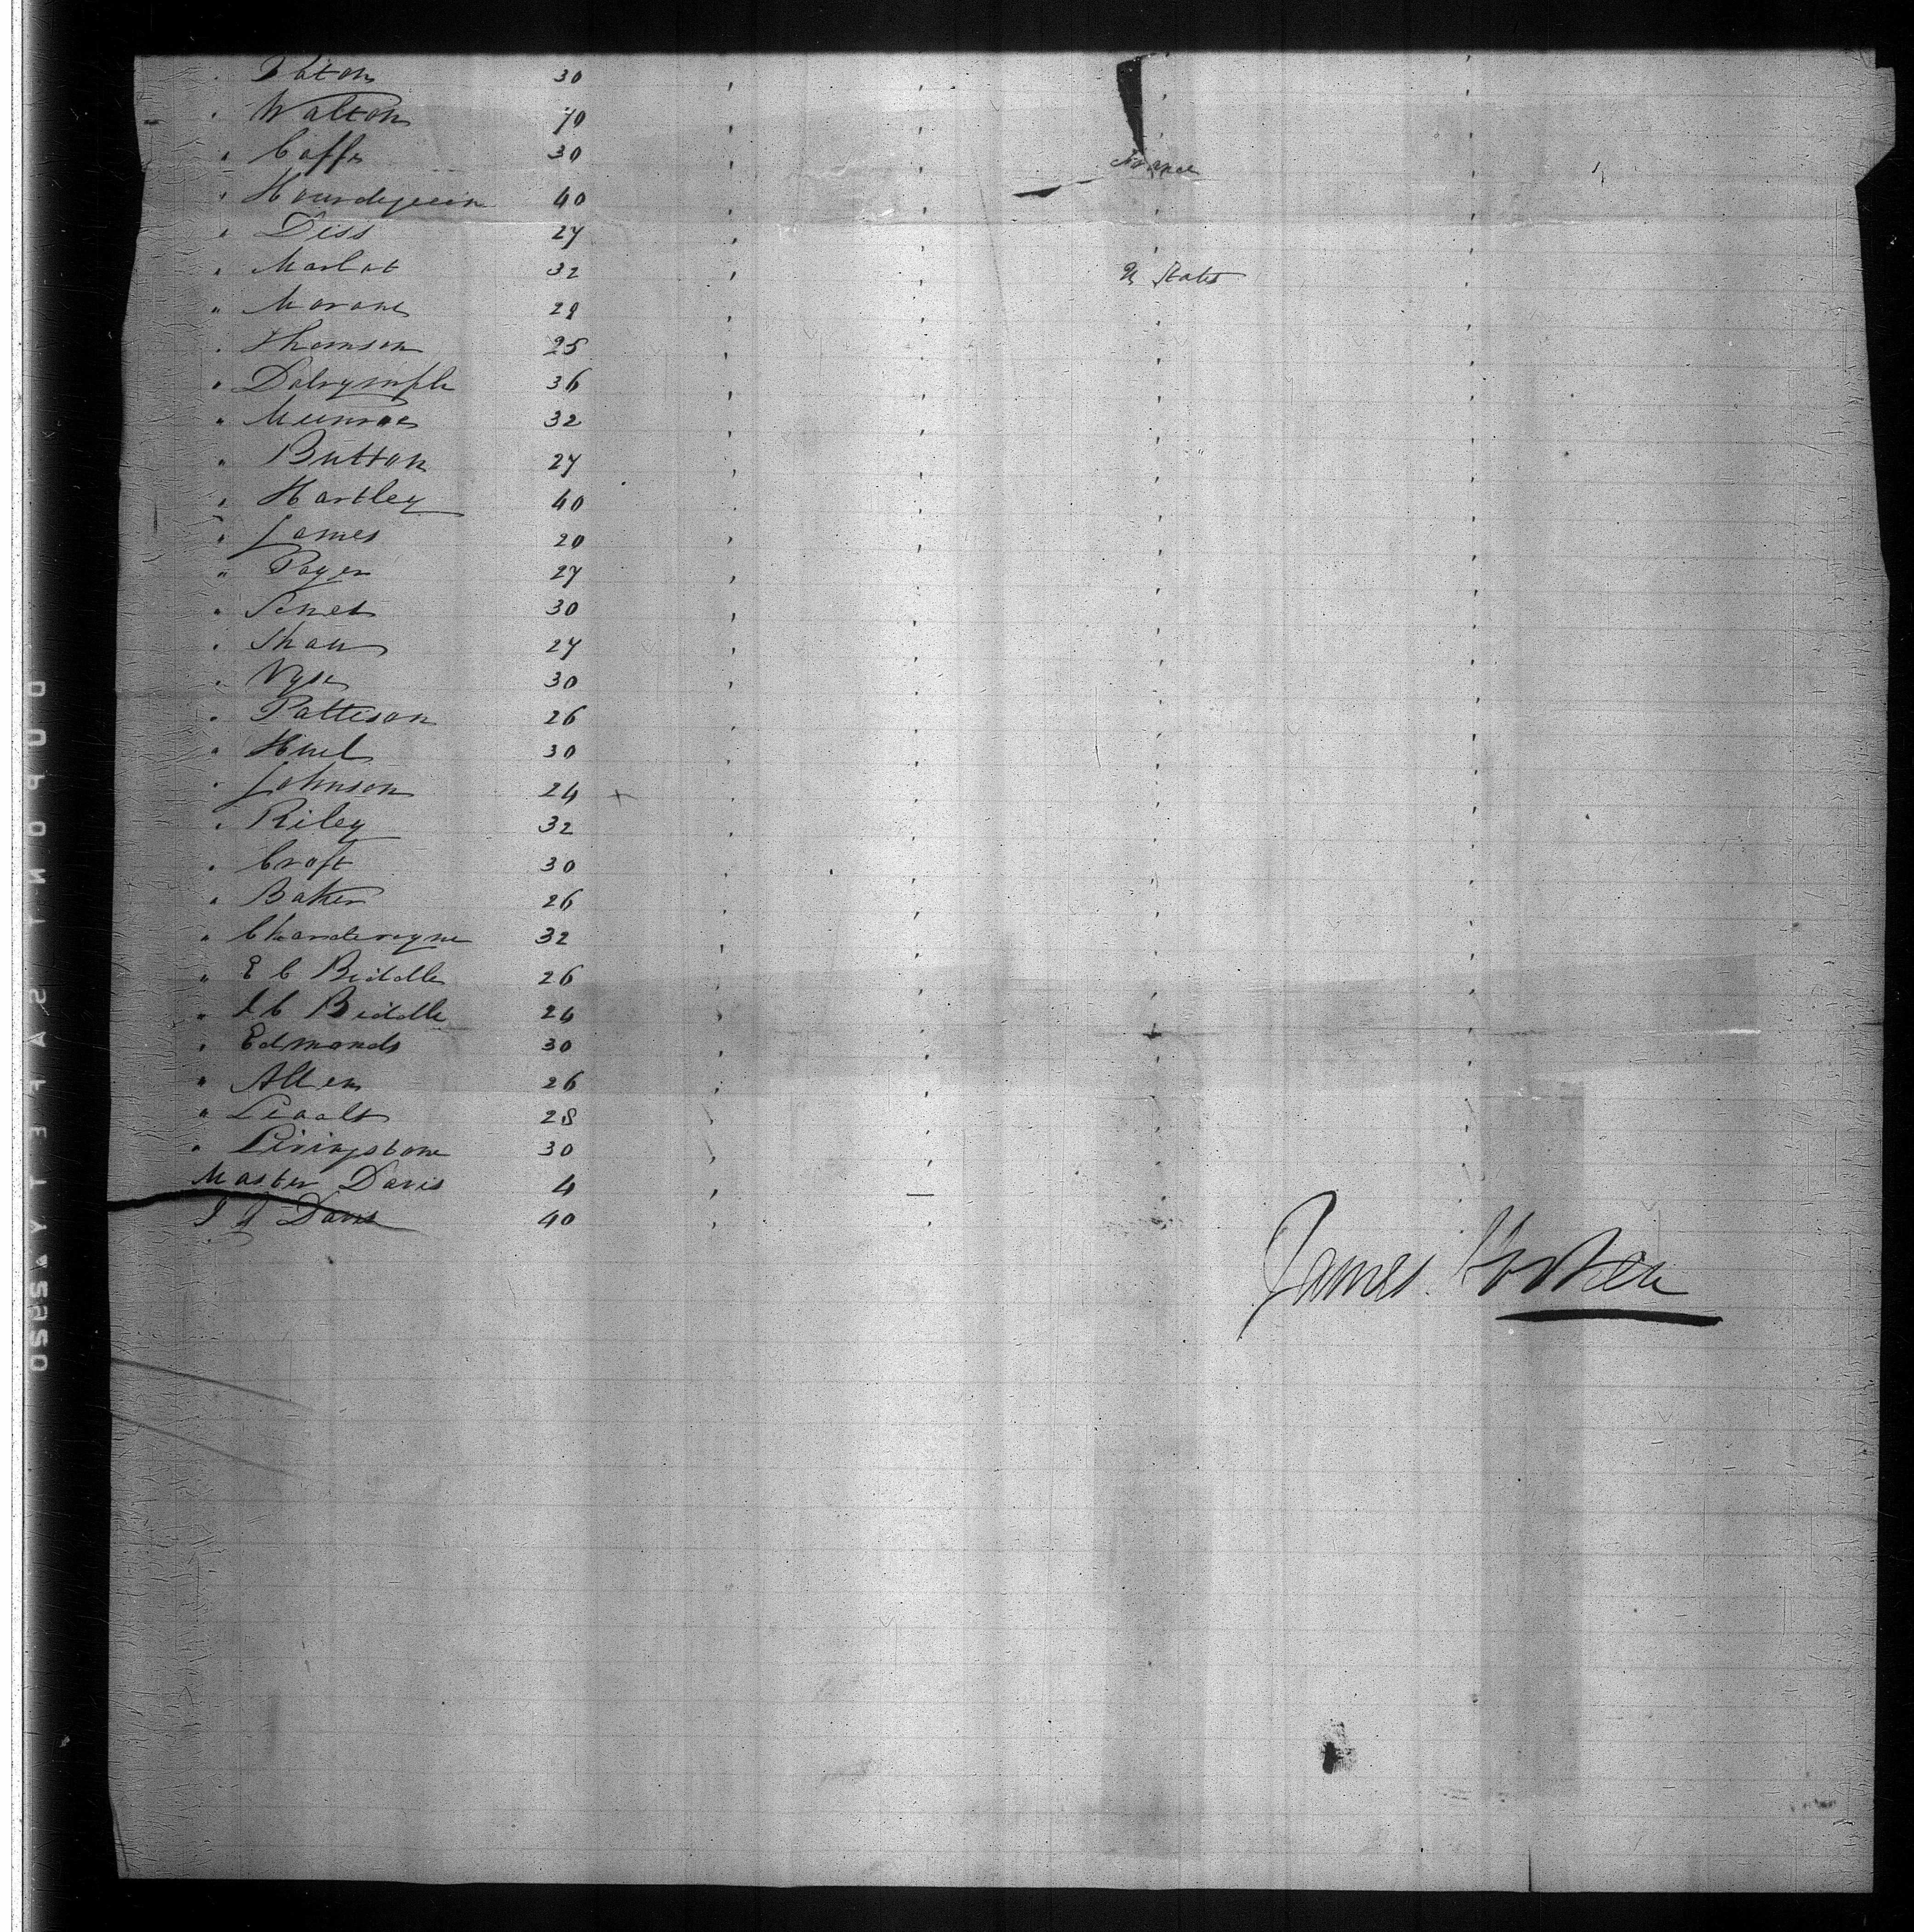 " Eaton 30 " " " "
" Walton 70 " " " "
" Caffe 30 " " France "
" Hourdequin 40 " " " "
" Diss 27 " " " "
" Marlat 32 " " U States "
" Morane 29 " " " "
" Thomson 25 " " " "
" Dalrymple 36 " " " "
" Munroe 32 " " " "
" Button 27 " " " "
" Hartley 40 " " " "
" James 20 " " " "
" Payen 27 " " " "
" 30 " " " "
" Shaw 27 " " " "
" Vyse 30 " " " "
" Pattison 26 " " " "
" Huel 30 " " " "
" Johnson 24 + " " " "
" Riley 32 " " " "
" Croft 30 " " " "
" Baker 26 " " " "
" 32 " " " "
" E C Biddle 26 " " " "
" I C Biddle 24 " " " "
" Edmonds 30 " " " "
" Allen 26 " " " "
" 28 " " " "
" Livingstone 30 " " " "
Master Davis 4 " — " "
Davis 40 " "
James